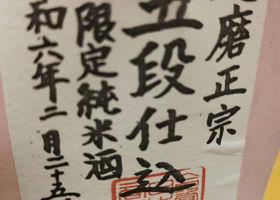 磨正宗
五段仕込
限定純米酒
和六年二月二十五